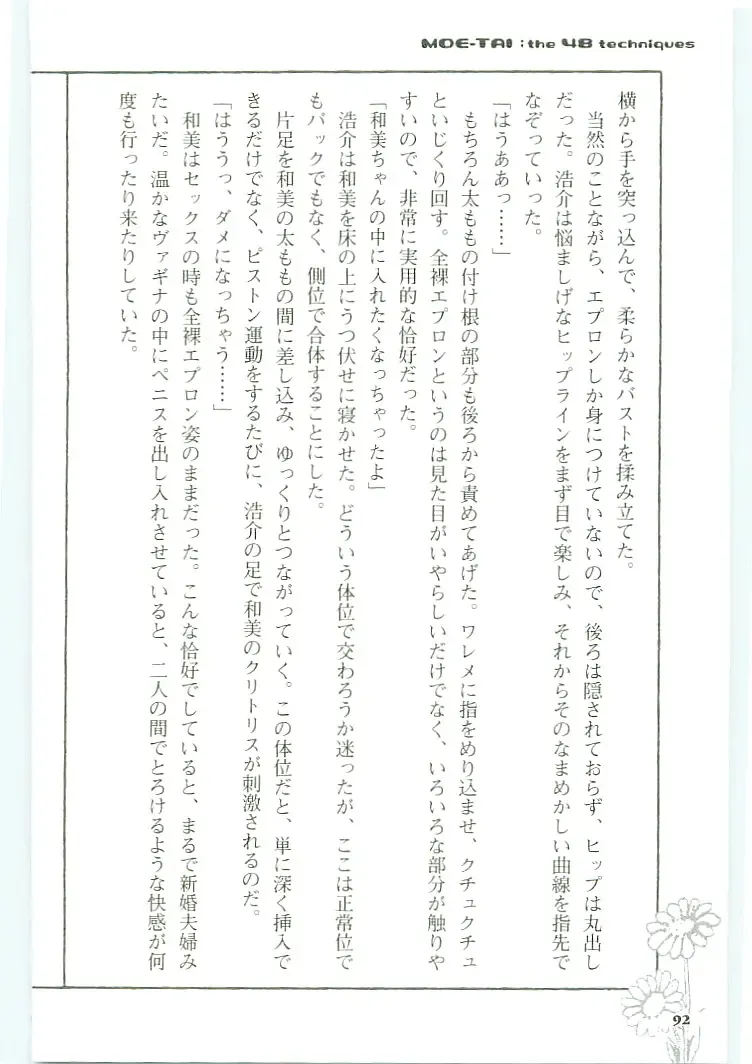 MOE-TAI : the 48 techniques
横から手を突っ込んで、柔らかなバストを揉み立てた。
当然のことながら、エプロンしか身につけていないので、後ろは隠されておらず、ヒップは丸出し
だった。浩介は悩ましげなヒップラインをまず目で楽しみ、それからそのなまめかしい曲線を指先で
なぞっていった。
「はうああっ……」
もちろん太ももの付け根の部分も後ろから責めてあげた。ワレメに指をめり込ませ、クチュクチュ
といじくり回す。全裸エプロンというのは見た目がいやらしいだけでなく、いろいろな部分が触りや
すいので、非常に実用的な恰好だった。
「和美ちゃんの中に入れたくなっちゃったよ」
浩介は和美を床の上にうつ伏せに寝かせた。どういう体位で交わろうか迷ったが、ここは正常位で
もバックでもなく、側位で合体することにした。
片足を和美の太ももの間に差し込み、ゆっくりとつながっていく。この体位だと、単に深く挿入で
きるだけでなく、ピストン運動をするたびに、浩介の足で和美のクリトリスが刺激されるのだ。
「はううっ、ダメになっちゃう……」
和美はセックスの時も全裸エプロン姿のままだった。こんな恰好でしていると、まるで新婚夫婦み
たいだ。温かなヴァギナの中にペニスを出し入れさせていると、二人の間でとろけるような快感が何
度も行ったり来たりしていた。
92